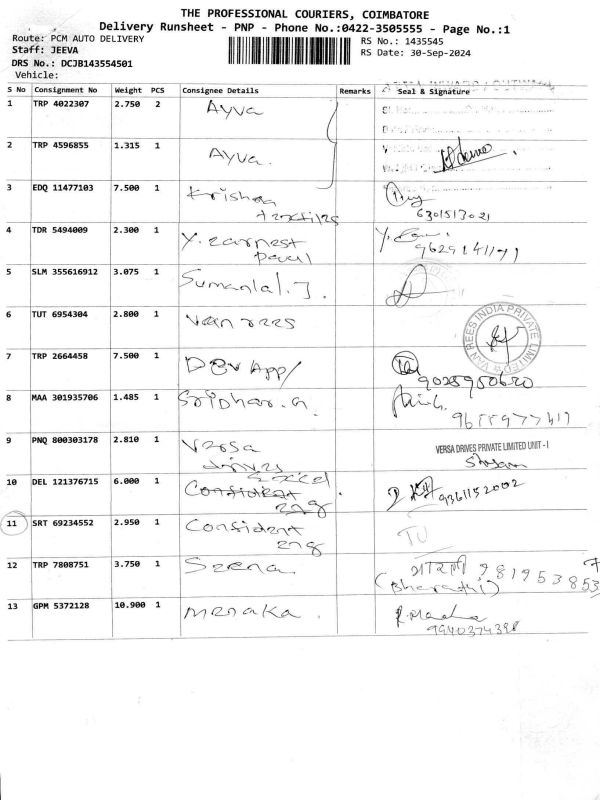 THE PROFESSIONAL COURIERS, COIMBATORE
Delivery Runsheet - PNP - Phone No.:0422-3505555 - Page No.:1
Route: PCM AUTO DELIVERY
RS No.: 1435545
Staff: JEEVA
RS Date: 30-Sep-2024
DRS No.: DCJB143554501
Vehicle:
S No Consignment No Weight PCS Consignee Details Remarks Seal & Signature
1 TRP 4022307 2.750 2 Ayva
2 TRP 4596855 1.315 1 Ayva.
3 EDQ 11477103 7.500 1 Krishna
6301513021
4 TDR 5494009 2.300 1 Y. earnest
9629141171
5 SLM 355616912 3.075 1 Sumanlal. J.
6 TUT 6954304 2.800 1 Van rees
VAN REES INDIA PRIVATE LIMITED
7 TRP 2664458 7.500 1 Dev App/
9025950620
8 MAA 301935706 1.485 1 Sridhar. a.
9655977417
9 PNQ 800303178 2.810 1 Versa
drives
VERSA DRIVES PRIVATE LIMITED UNIT - I
10 DEL 121376715 6.000 1 Confident
eng
9361152002
11 SRT 69234552 2.950 1 Confident
eng
TU
12 TRP 7808751 3.750 1 Seena.
9819538537
(Bharathi)
13 GPM 5372128 10.900 1 menaka.
9940374398